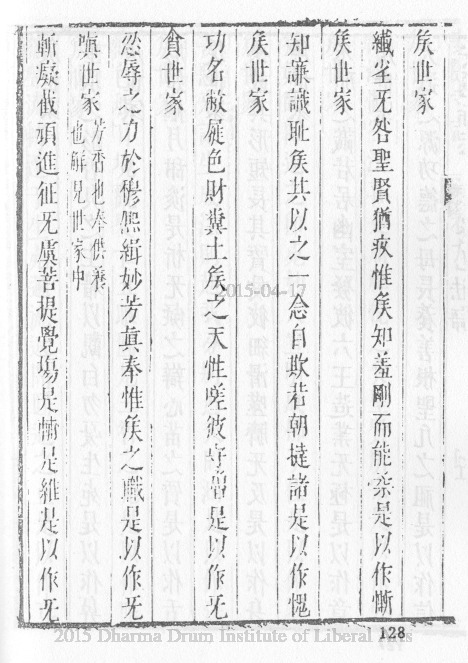 矦世家
纖尘旡咎聖賢猶疚惟矦知羞剛而能柰是以作慚
矦世家
知謙識恥矦共以之一念自欺若朝撻諸是以作愧
矦世家
功名敝屣色財糞土矦之天性嗟彼守是以作旡
貪世家
忍辱之力於穆熙緝妙芳眞奉惟矦之職是以作旡
嗔世家
芳香也奉供養
也解見世家中
斬癡截頑進征旡虞菩提覺場是慚是維是以作旡
128
2015-04-17
2015 Dharma Drum Institute of Liberal Arts